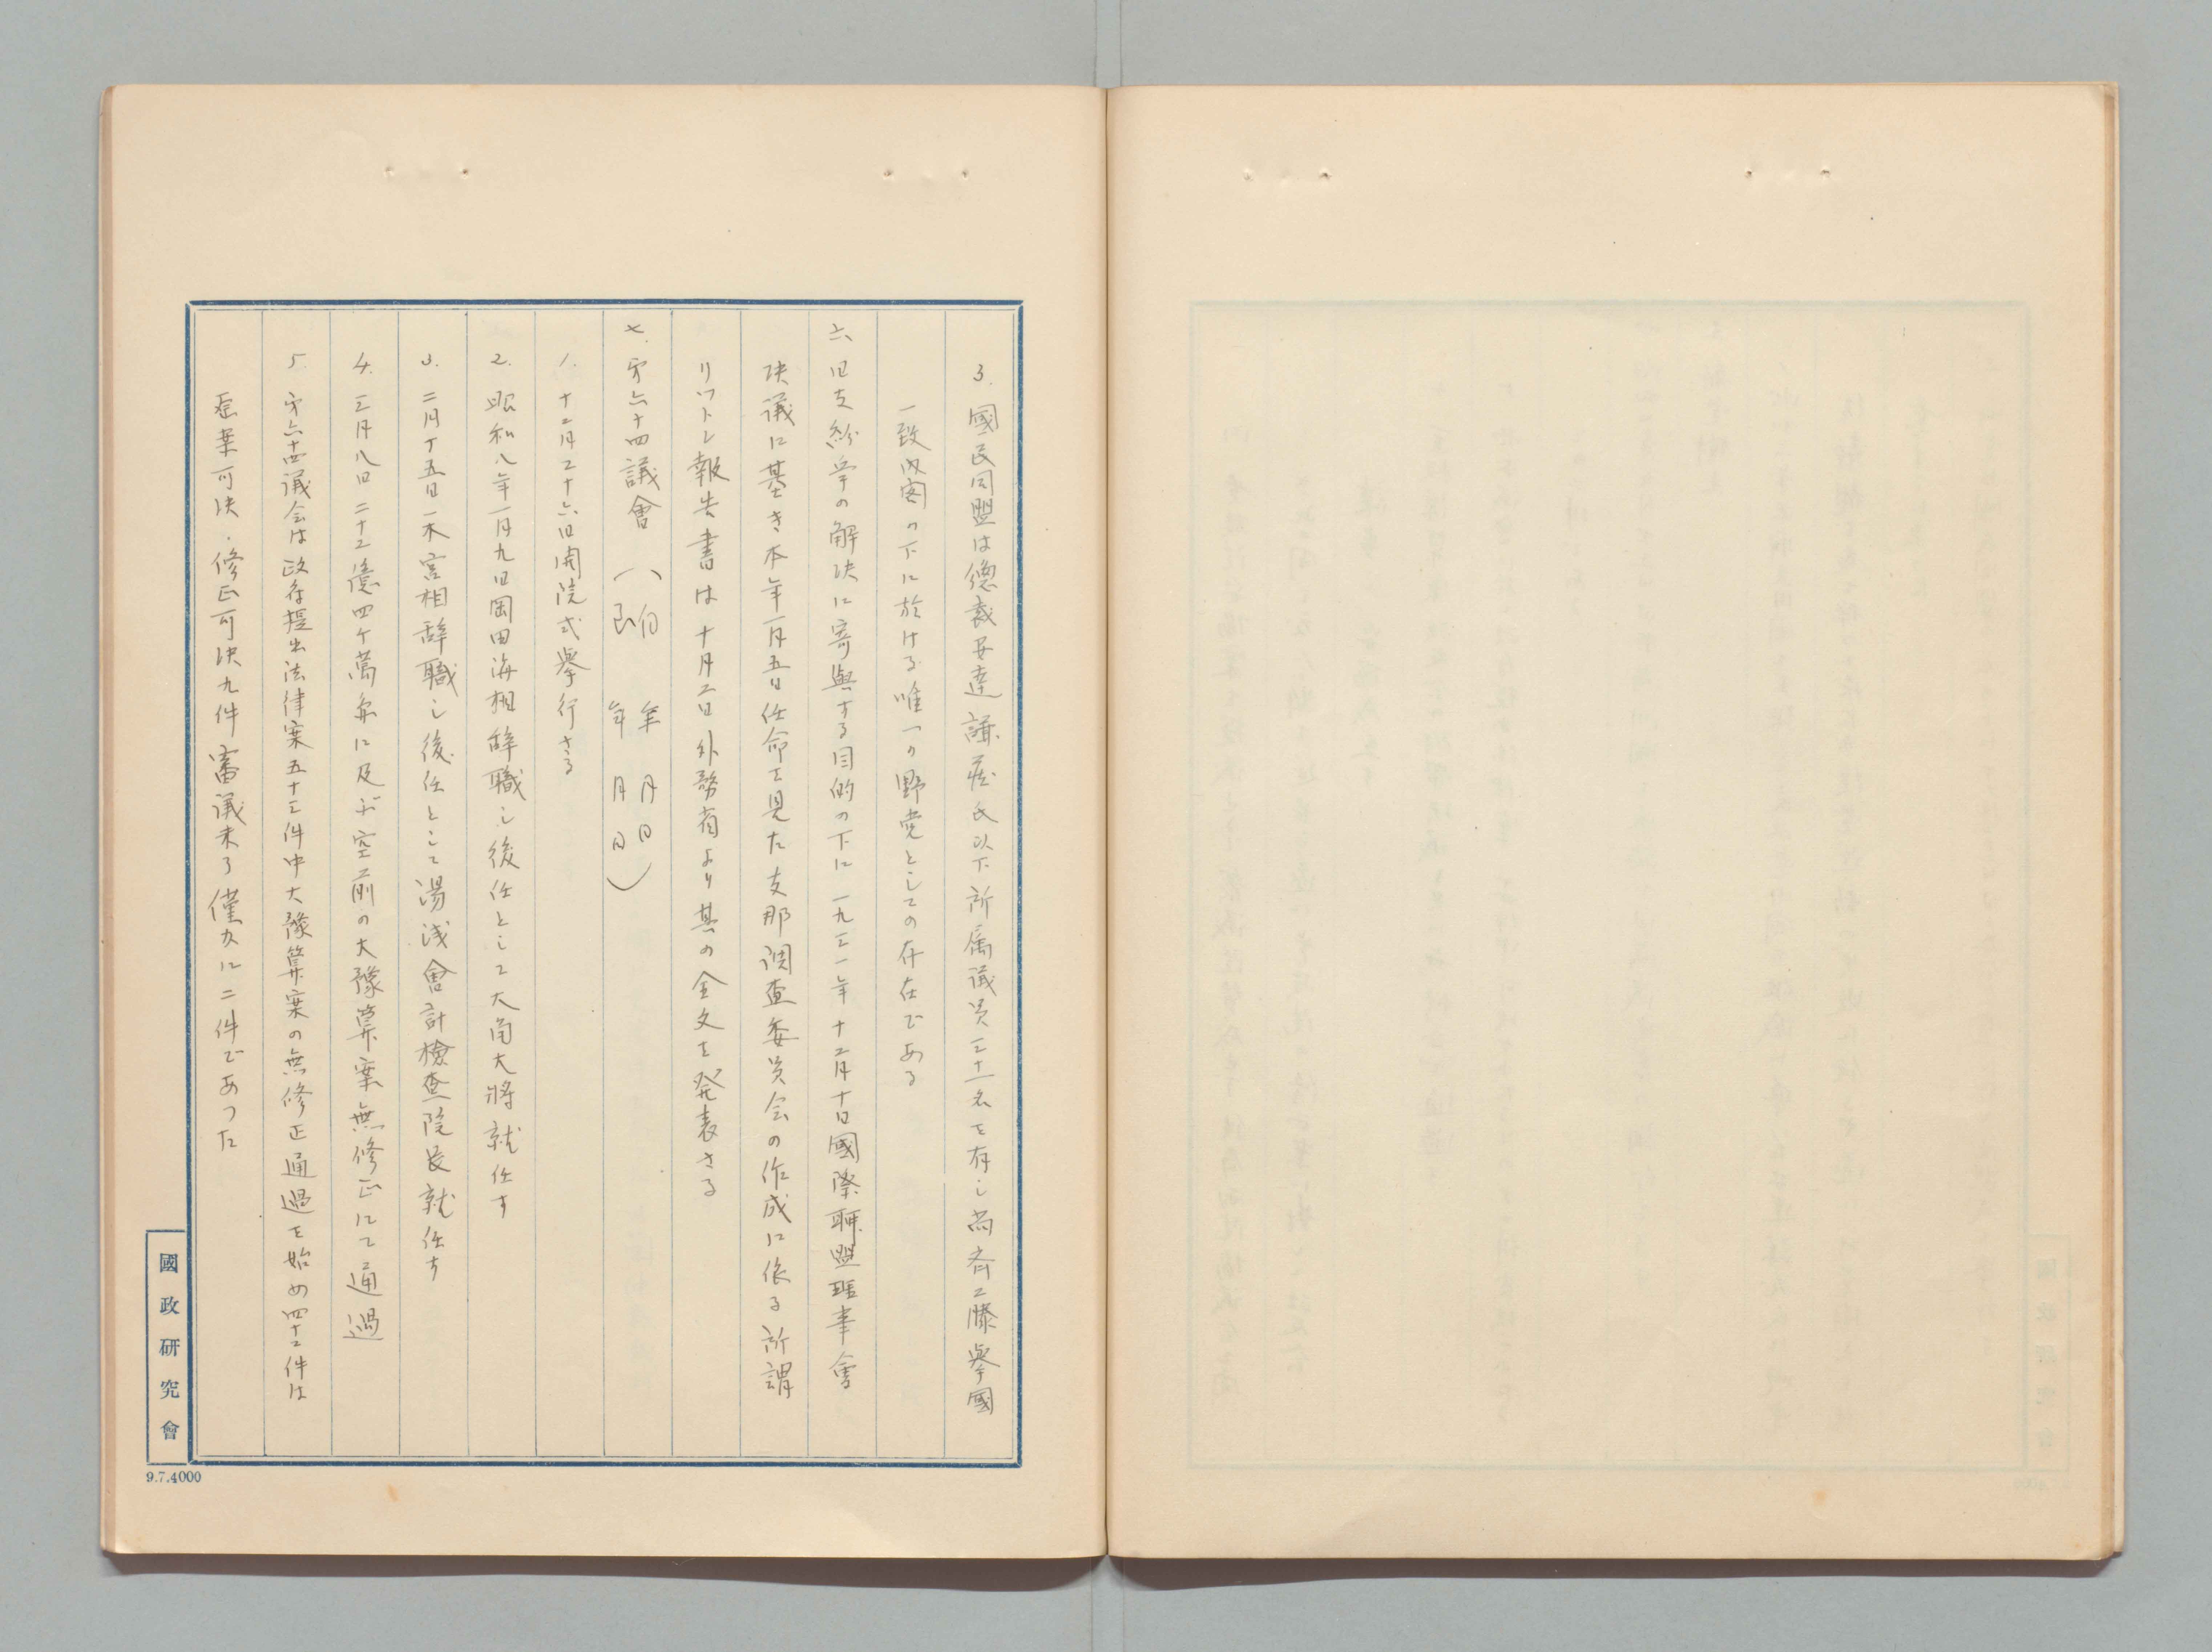 3. 國民同盟は總裁安達謙蔵氏以下所属議員三十一名を有し尚斉藤擧國
一致内閣の下に於ける唯一の野党としての存在である
六、日支紛爭の解決に寄與する目的の下に一九三一年十二月十日國際聯盟理事會
決議に基き本年一月五日任命を見た支那調査委員会の作成に依る所謂
リットン報告書は十月二日外務省より其の全文を発表さる
七、第六十四議會（自 年 月 日
至 年 月 日）
1. 十二月二十六日開院式擧行さる
2. 昭和八年一月九日岡田海相辞職し後任として大角大將就任す
3. 二月十五日一木宮相辞職し後任として湯浅會計檢査院長就任す
4. 三月八日二十二億四千萬余に及ぶ空前の大豫算案無修正にて通過
5. 第六十四議会は政府提出法律案五十三件中大豫算案の無修正通過を始め四十二件は
原案可決．修正可決九件審議未了僅かに二件であつた
國政研究會
9.7.4000